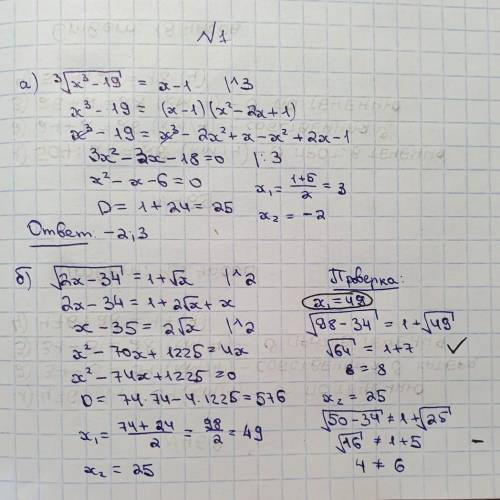 №1
а) ³√(x³ - 19) = x - 1 |^3
x³ - 19 = (x-1)(x² - 2x + 1)
x³ - 19 = x³ - 2x² + x - x² + 2x - 1
3x² - 3x - 18 = 0 |: 3
x² - x - 6 = 0
D = 1 + 24 = 25
x₁ = (1+5)/2 = 3
x₂ = -2
Ответ: -2; 3
б) √(2x - 34) = 1 + √x |^2
2x - 34 = 1 + 2√x + x
x - 35 = 2√x |^2
x² - 70x + 1225 = 4x
x² - 74x + 1225 = 0
D = 74·74 - 4·1225 = 576
x₁ = (74 + 24)/2 = 98/2 = 49
x₂ = 25
Проверка:
x₁ = 49
√(98 - 34) = 1 + √49
√64 = 1 + 7 ✓
8 = 8
x₂ = 25
√(50 - 34) ≠ 1 + √25
√16 ≠ 1 + 5 -
4 ≠ 6